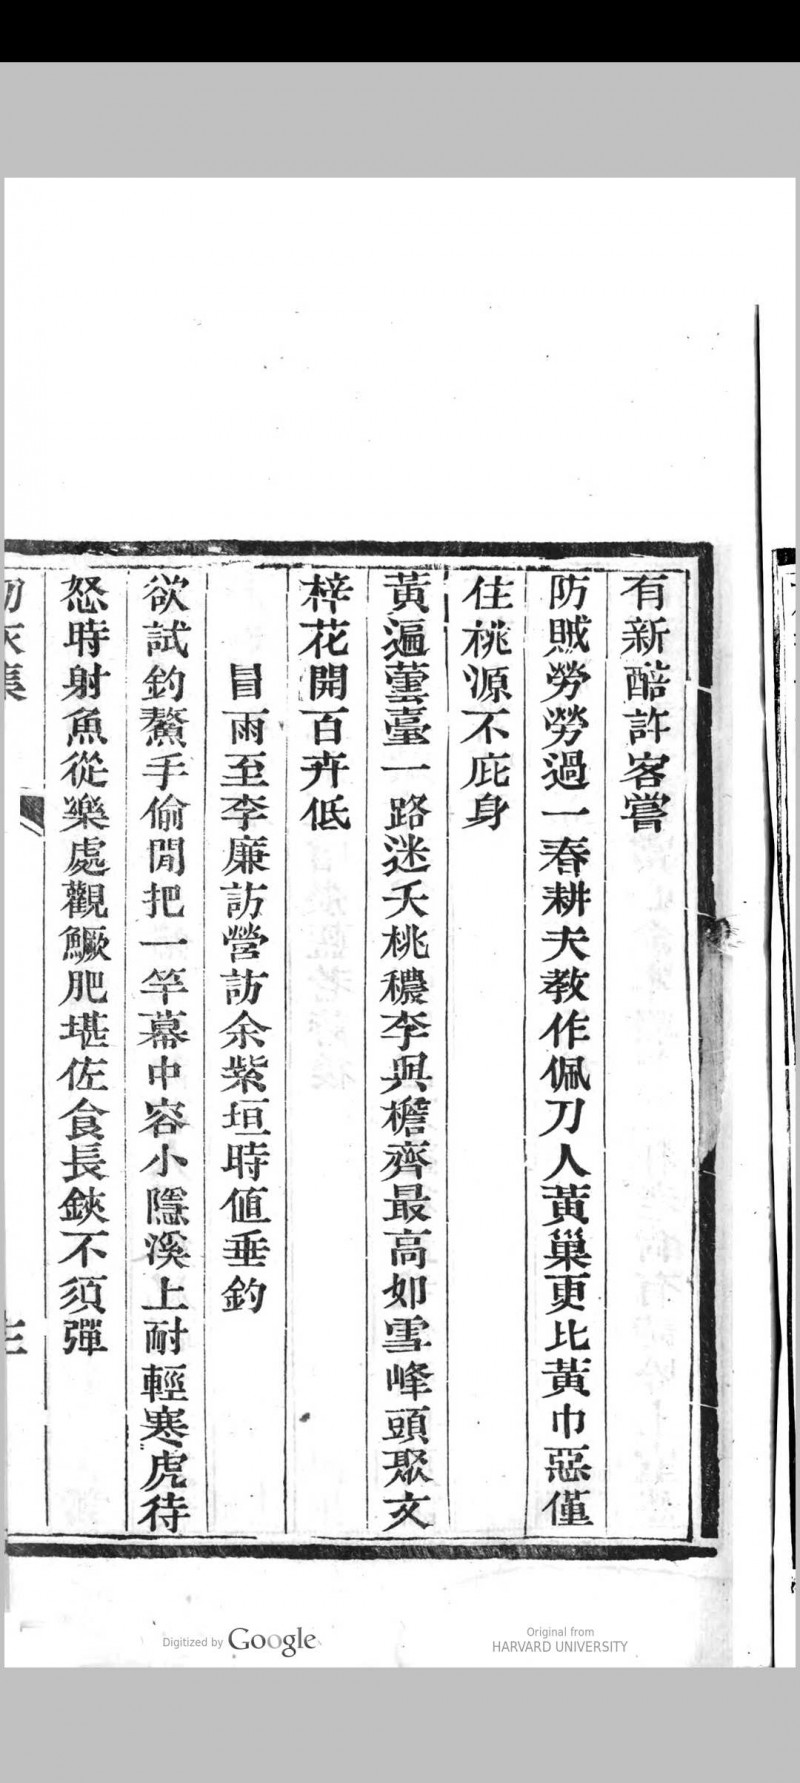 有新醅許客嘗
防賊勞勞過一春耕夫教作佩刀人黃巢更比黃巾惡僅
住桃源不庇身
黃遍蕓薹一路迷夭桃穠李與檐齊最高如雪峰頭聚文
梓花開百卉低
冒雨至李廉訪營訪余紫垣時値垂釣
欲試釣鰲手偷閒把一竿幕中容小隱溪上耐輕寒虎待
怒時射魚從樂處觀鱖肥堪佐食長鋏不須彈
Digitized by Google
Original from
HARVARD UNIVERSITY